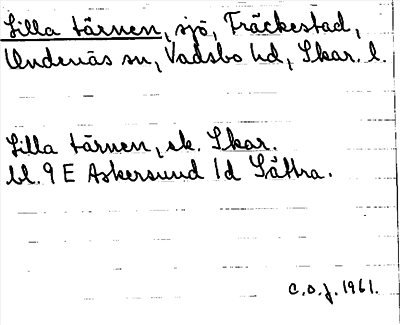 Lilla tärnen, sjö, Träckestad,
Undenäs sn, Vadsbo hd, Skar. l.
Lilla tärnen, ek. Skar.
bl. 9 E Askersund 1d Sättra.
C.O.J. 1961.